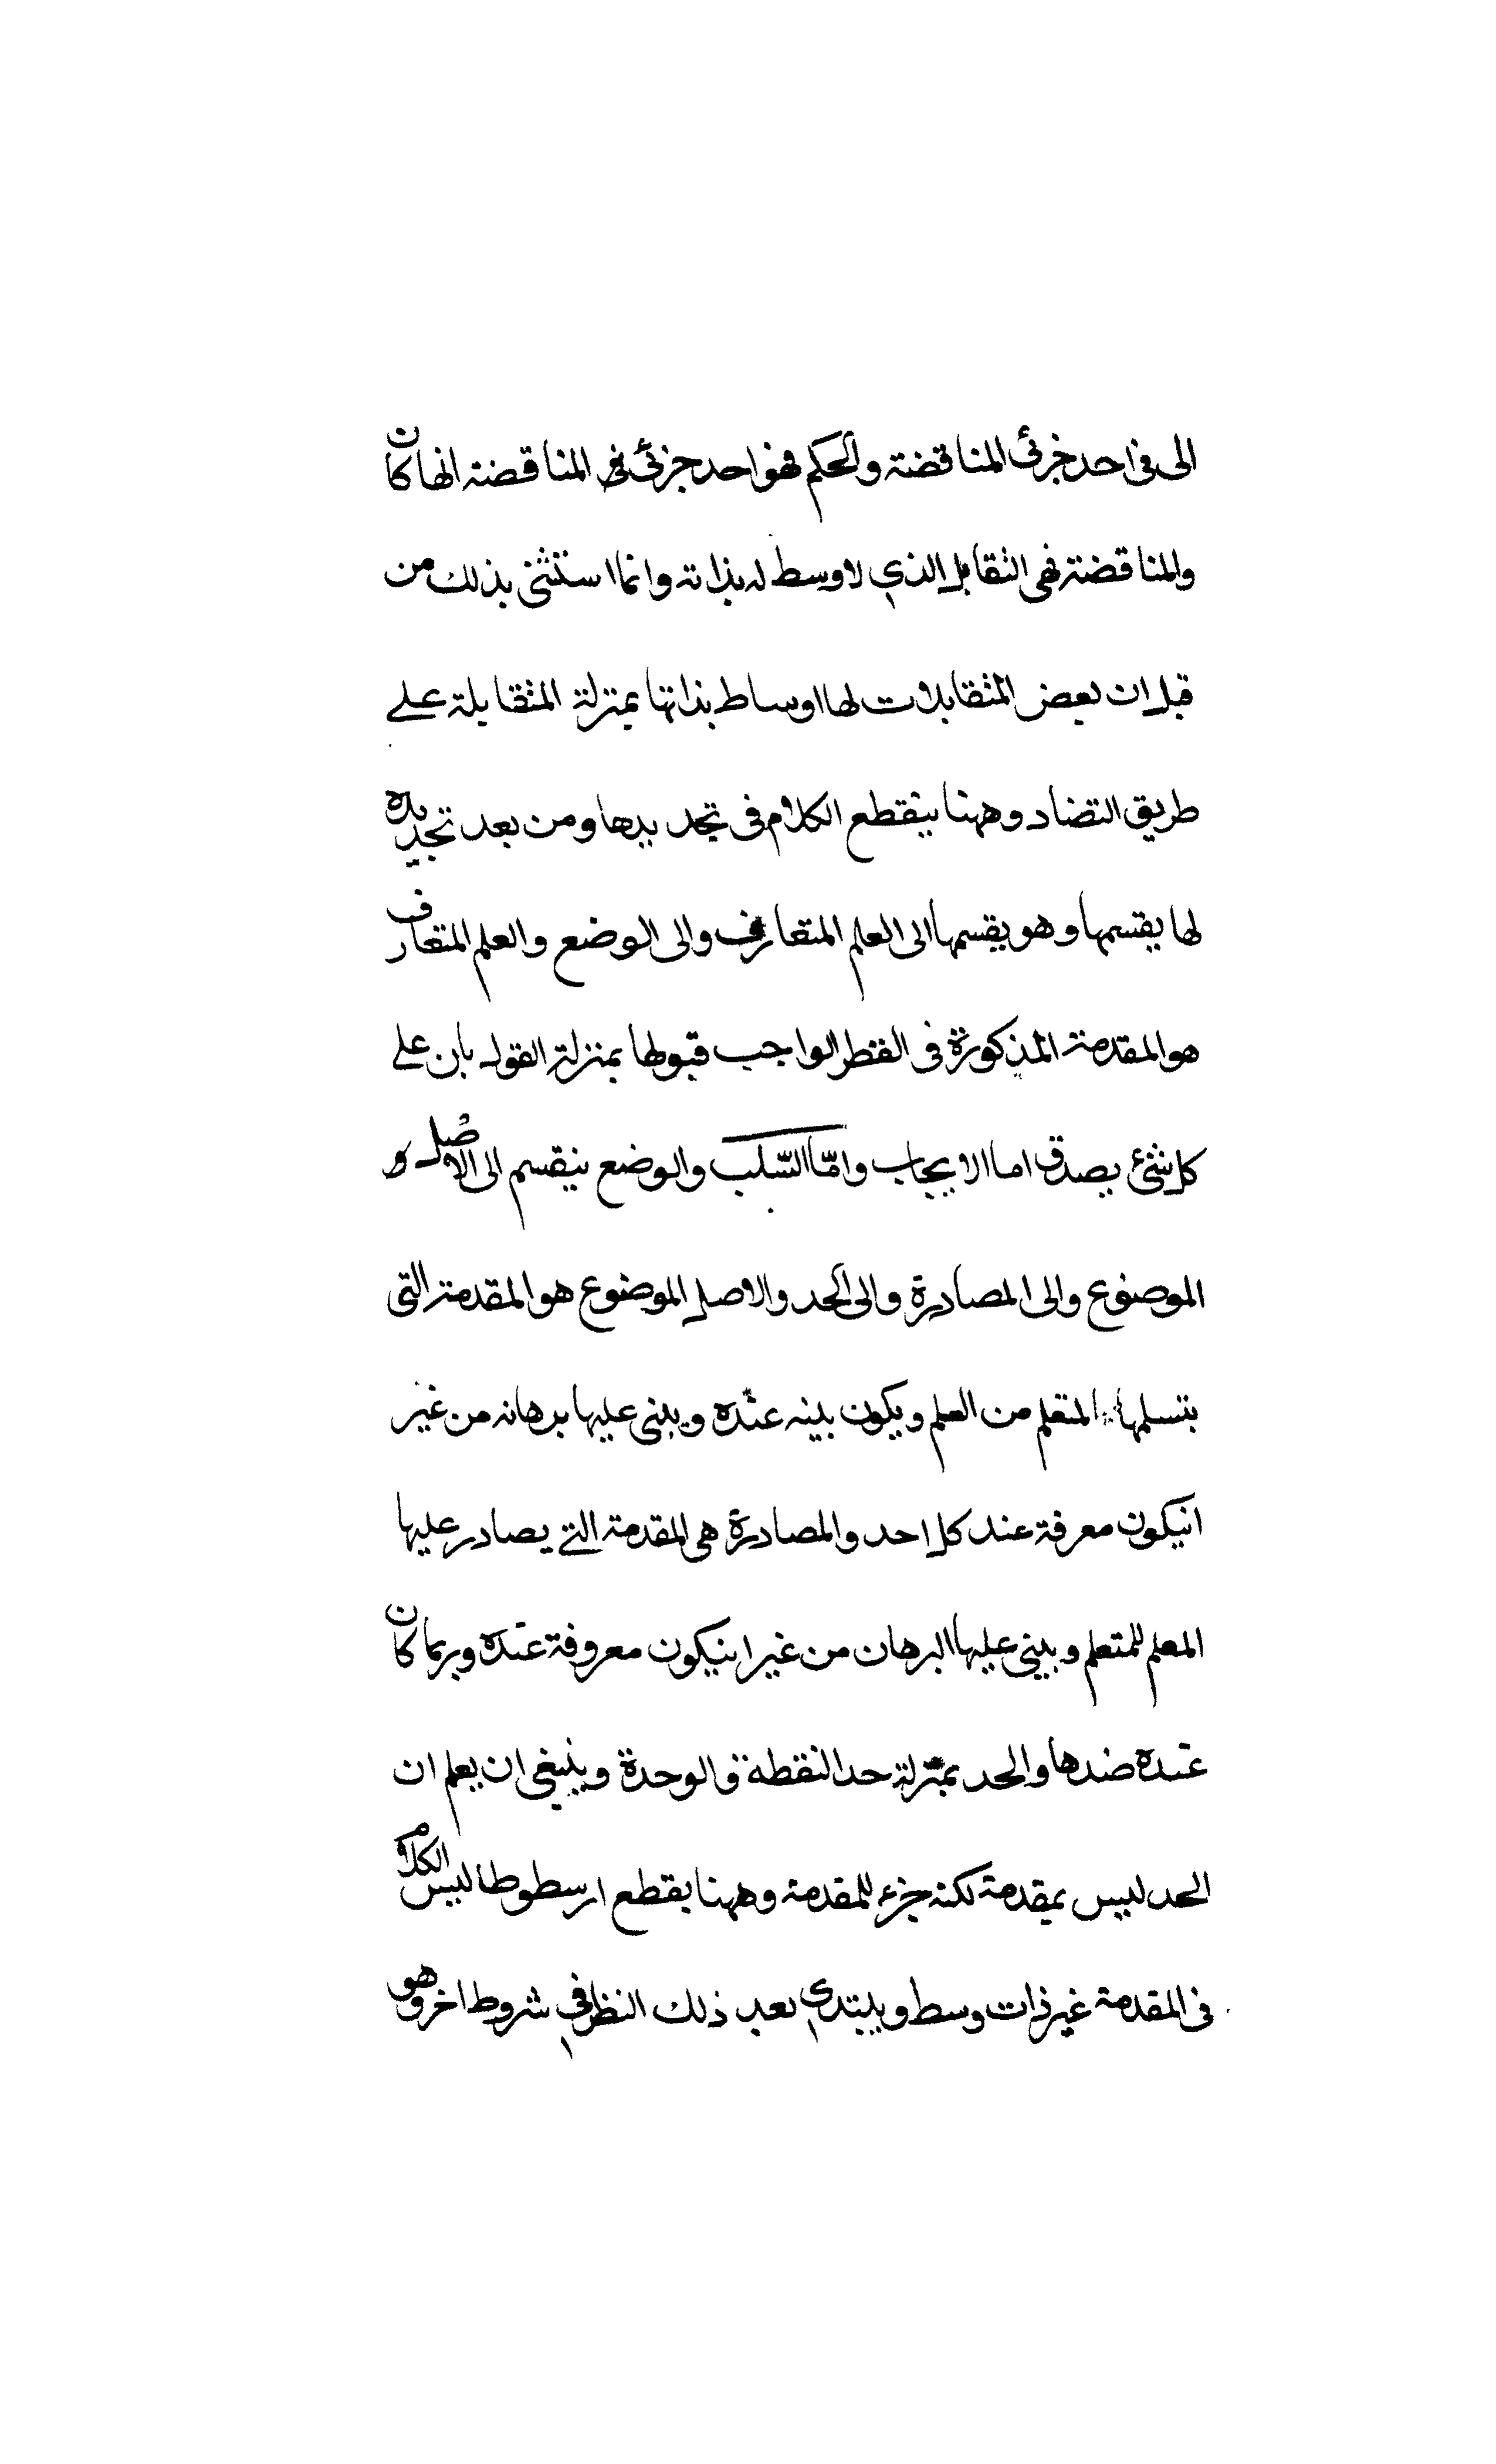 الى فى احد جزئى المناقضة والحكم فهو احد جزئى فى المناقضة ايها كان
والمناقضة فهى التقابل الذي لا وسط له بذاته وانما استثنى بذلك من
قبل ان بعض المتقابلات لها اوساط بذاتها بمنزلة المتقابلة على
طريق التضاد وههنا ينقطع الكلام فى تحديدها ومن بعد تحديده
لها يقسمها وهو يقسمها الى العلم المتعارف والى الوضع والعلم المتعارف
هو المقدمة المذكورة فى الفطر الواجب قبولها بمنزلة القول بان على
كل شئ يصدق اما الايجاب وامّا السّلب والوضع ينقسم الى الاصل
الموضوع والى المصادرة والى الحد والاصل الموضوع هو المقدمة التى
يتسلمها المتعلم من العلم ويكون بينه عنده ويبنى عليها برهانه من غير
انيكون معرفة عند كل احد والمصادرة هى المقدمة التى يصادر عليها
المعلم للمتعلم ويبنى عليها البرهان من غير انيكون معروفة عنده وربما كان
عنده ضدها والحد بمنزلة حد النقطة والوحدة وينبغى ان يعلم ان
الحد ليس بمقدمة لكنه جزء للمقدمة وههنا يقطع ارسطوطاليس الكلام
فى المقدمة غير ذات وسط ويبتدي بعد ذلك النظر في شروط اخر وهو